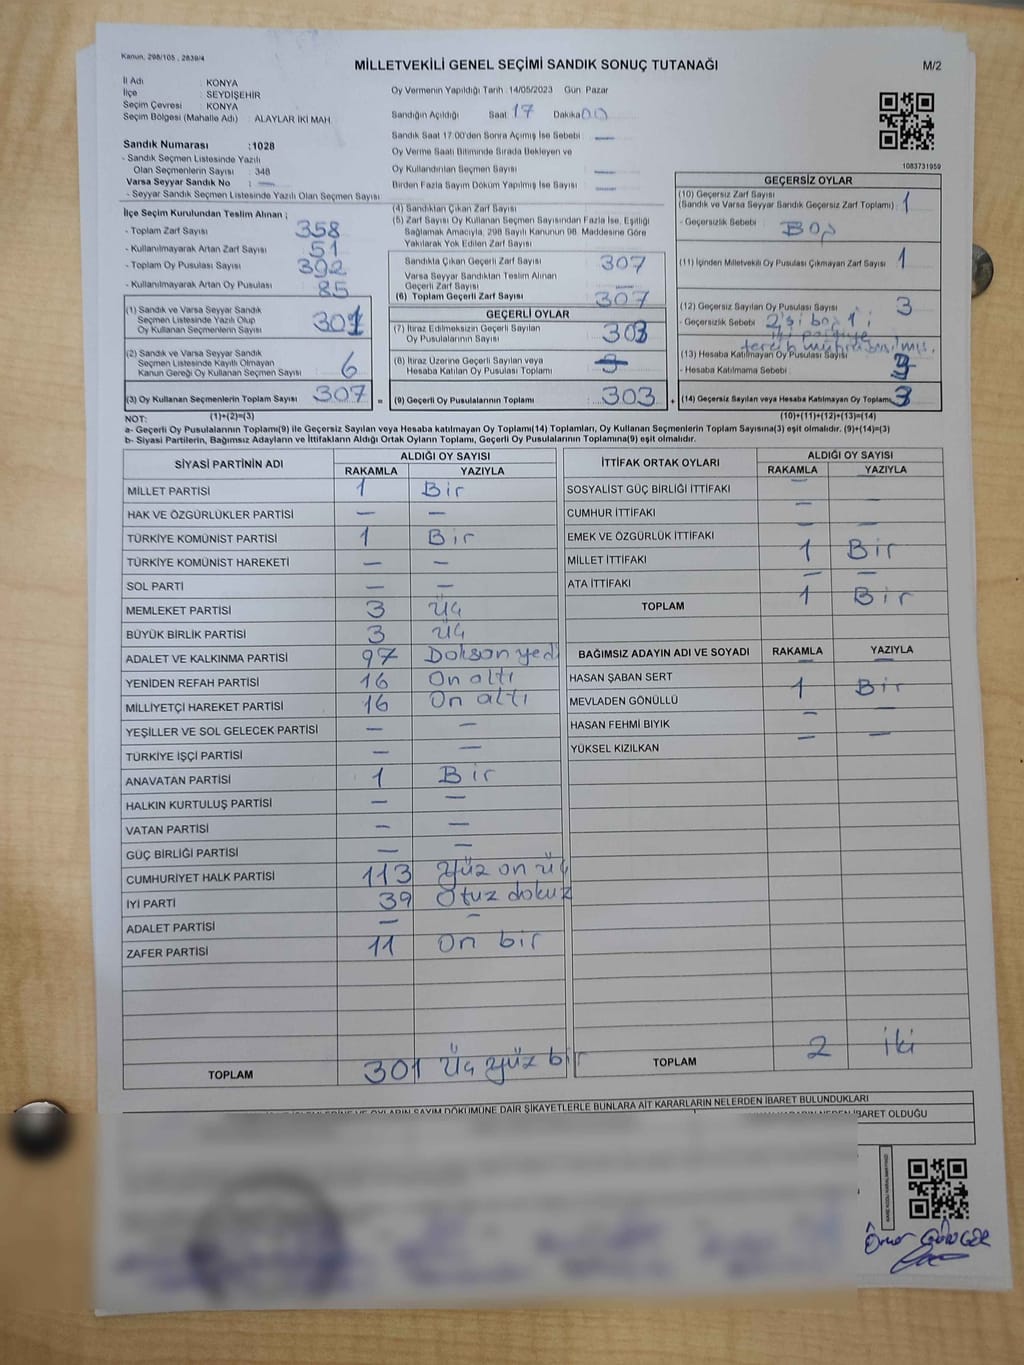 Kanun, 298/105 , 2839/4
MİLLETVEKİLİ GENEL SEÇİMİ SANDIK SONUÇ TUTANAĞI
M/2
İl Adı : KONYA
İlçe : SEYDİŞEHİR
Seçim Çevresi : KONYA
Seçim Bölgesi (Mahalle Adı) : ALAYLAR İKİ MAH.
Oy Vermenin Yapıldığı Tarih :14/05/2023 Gün Pazar
Sandığın Açıldığı Saat 17 Dakika 00
Sandık Saat 17:00'den Sonra Açımış İse Sebebi : —
Oy Verme Saati Bitiminde Sırada Bekleyen ve
Oy Kullandırılan Seçmen Sayısı : —
Birden Fazla Sayım Döküm Yapılmış İse Sayısı : —
1083731959
Sandık Numarası :1028
- Sandık Seçmen Listesinde Yazılı
Olan Seçmenlerin Sayısı : 348
Varsa Seyyar Sandık No : —
- Seyyar Sandık Seçmen Listesinde Yazılı Olan Seçmen Sayısı
İlçe Seçim Kurulundan Teslim Alınan ;
- Toplam Zarf Sayısı 358
- Kullanılmayarak Artan Zarf Sayısı 51
- Toplam Oy Pusulası Sayısı 392
- Kullanılmayarak Artan Oy Pusulası 85
(1) Sandık ve Varsa Seyyar Sandık
Seçmen Listesinde Yazılı Olup
Oy Kullanan Seçmenlerin Sayısı : 301
(2) Sandık ve Varsa Seyyar Sandık
Seçmen Listesinde Kayıtlı Olmayan
Kanun Gereği Oy Kullanan Seçmen Sayısı : 6
(3) Oy Kullanan Seçmenlerin Toplam Sayısı : 307
(4) Sandıktan Çıkan Zarf Sayısı
(5) Zarf Sayısı Oy Kullanan Seçmen Sayısından Fazla İse, Eşitliği
Bağlamak Amacıyla, 298 Sayılı Kanunun 98. Maddesine Göre
Yakılarak Yok Edilen Zarf Sayısı
Sandıkta Çıkan Geçerli Zarf Sayısı : 307
Varsa Seyyar Sandıktan Teslim Alınan
Geçerli Zarf Sayısı :
(6) Toplam Geçerli Zarf Sayısı : 307
GEÇERLİ OYLAR
(7) İtiraz Edilmeksizin Geçerli Sayılan
Oy Pusulasının Sayısı : 303
(8) İtiraz Üzerine Geçerli Sayılan veya
Hesaba Katılan Oy Pusulası Toplamı :
= (9) Geçerli Oy Pusulalarının Toplamı : 303
GEÇERSİZ OYLAR
(10) Geçersiz Zarf Sayısı
(Sandık ve Varsa Seyyar Sandık Geçersiz Zarf Toplamı) : 1
- Geçersizlik Sebebi : Boş
(11) İçinden Milletvekili Oy Pusulası Çıkmayan Zarf Sayısı : 1
(12) Geçersiz Sayılan Oy Pusulası Sayısı : 3
- Geçersizlik Sebebi 2'si boş 1'i
iki partiye
tercih mührü basılmış.
(13) Hesaba Katılmayan Oy Pusulası Sayısı
- Hesaba Katılmama Sebebi :
+ (14) Geçersiz Sayılan veya Hesaba Katılmayan Oy Toplamı : 3
NOT: (1)+(2)=(3) (10)+(11)+(12)+(13)=(14)
a- Geçerli Oy Pusulalarının Toplamı(9) ile Geçersiz Sayılan veya Hesaba katılmayan Oy Toplamı(14) Toplamları, Oy Kullanan Seçmenlerin Toplam Sayısına(3) eşit olmalıdır. (9)+(14)=(3)
b- Siyasi Partilerin, Bağımsız Adayların ve İttifakların Aldığı Ortak Oyların Toplamı, Geçerli Oy Pusulalarının Toplamına(9) eşit olmalıdır.
SİYASİ PARTİNİN ADI ALDIĞI OY SAYISI
RAKAMLA YAZIYLA
MİLLET PARTİSİ 1 Bir
HAK VE ÖZGÜRLÜKLER PARTİSİ — —
TÜRKİYE KOMÜNİST PARTİSİ 1 Bir
TÜRKİYE KOMÜNİST HAREKETİ — —
SOL PARTİ — —
MEMLEKET PARTİSİ 3 Üç
BÜYÜK BİRLİK PARTİSİ 3 Üç
ADALET VE KALKINMA PARTİSİ 97 Doksan yedi
YENİDEN REFAH PARTİSİ 16 On altı
MİLLİYETÇİ HAREKET PARTİSİ 16 On altı
YEŞİLLER VE SOL GELECEK PARTİSİ — —
TÜRKİYE İŞÇİ PARTİSİ — —
ANAVATAN PARTİSİ 1 Bir
HALKIN KURTULUŞ PARTİSİ — —
VATAN PARTİSİ — —
GÜÇ BİRLİĞİ PARTİSİ — —
CUMHURİYET HALK PARTİSİ 113 Yüz on üç
İYİ PARTİ 39 Otuz dokuz
ADALET PARTİSİ — —
ZAFER PARTİSİ 11 On bir
TOPLAM 301 Üç yüz bir
İTTİFAK ORTAK OYLARI ALDIĞI OY SAYISI
RAKAMLA YAZIYLA
SOSYALİST GÜÇ BİRLİĞİ İTTİFAKI — —
CUMHUR İTTİFAKI — —
EMEK VE ÖZGÜRLÜK İTTİFAKI — —
MİLLET İTTİFAKI 1 Bir
ATA İTTİFAKI — —
TOPLAM 1 Bir
BAĞIMSIZ ADAYIN ADI VE SOYADI RAKAMLA YAZIYLA
HASAN ŞABAN SERT — —
MEVLADEN GÖNÜLLÜ 1 Bir
HASAN FEHMİ BIYIK — —
YÜKSEL KIZILKAN — —
TOPLAM 2 İki
OYLARIN SAYIM DÖKÜMÜNE DAİR ŞİKAYETLERLE BUNLARA AİT KARARLARIN NELERDEN İBARET BULUNDUKLARI
KARARIN NEDEN İBARET OLDUĞU
Ömer